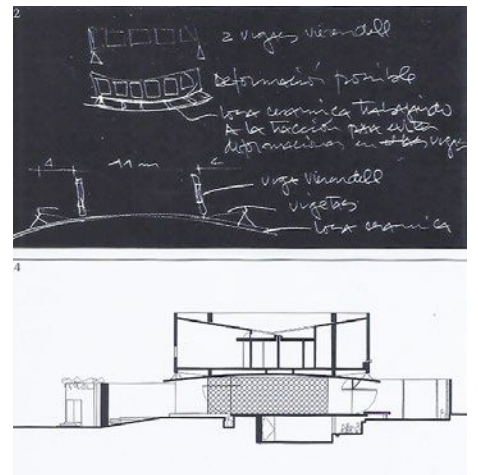 2
2 vigas vierendell
Deformación posible
losa ceramica trabajando
A la tracción para evitar
deformaciones en vigas
4 11 m
viga vierendell
viguetas
losa ceramica
4